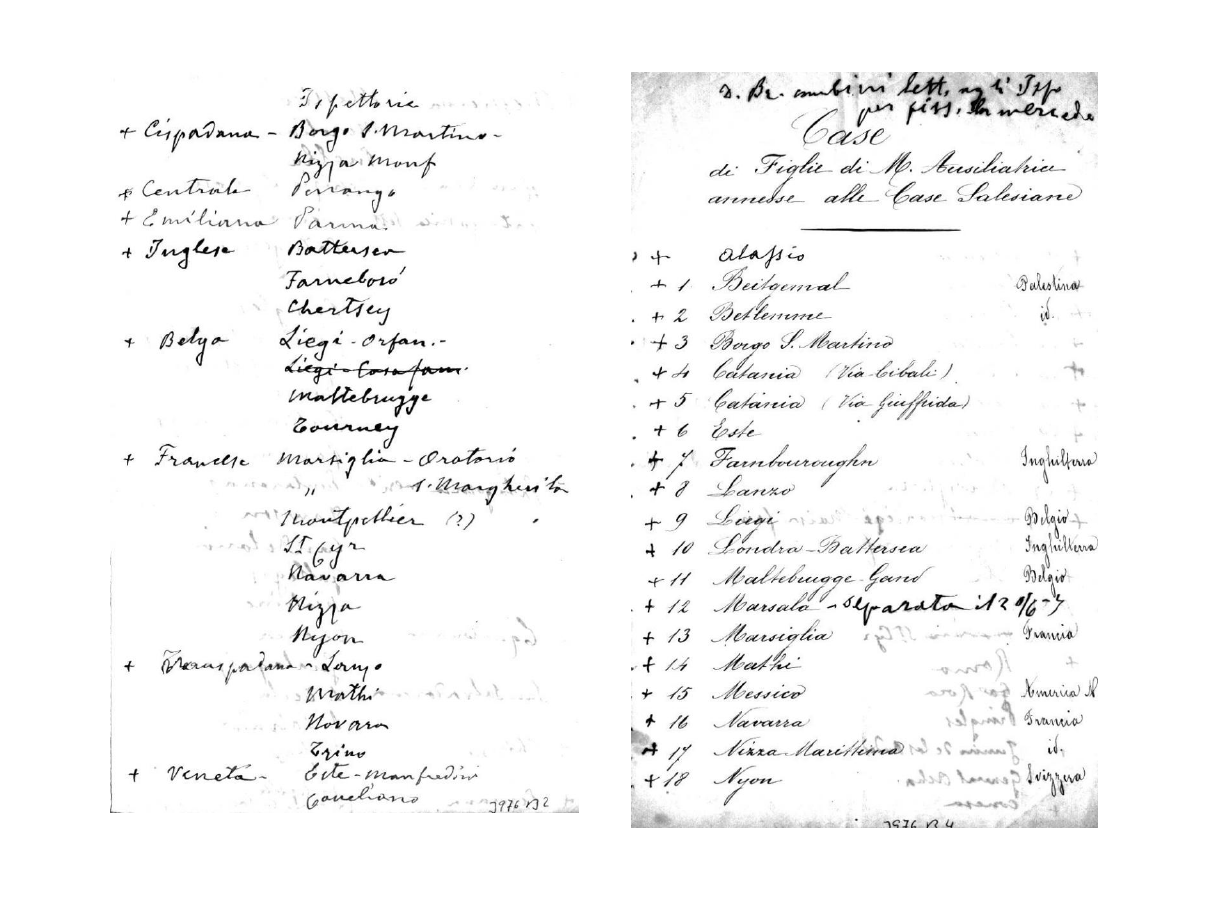 Ispettorie
+ Cispadana - Borgo S. Martino -
Nizza Monf
+ Centrale Penango
+ Emiliana Parma.
+ Inglese Battersea
Farneboró
Chertsey
+ Belga Liegi - Orfan. -
Liegi - Casa fam.
Maltebrugge
Tourney
+ Francese Marsiglia - Oratorio
" S. Margherita
Montpellier (?)
St Cyr
Navarra
Nizza
Nyon
+ Transpadana - Lanzo
Mathi
Novara
Trino
+ Veneta - Este - Manfredini
Conegliano
J976 B2
D. Br. lett, agli Isp
per fiss. la mercede
Case
di Figlie di M. Ausiliatrice
annesse alle Case Salesiane
+ Alassio
+ 1 Beitgemal Palestina
+ 2 Betlemme id.
+ 3 Borgo S. Martino
+ 4 Catania (Via Cibali)
+ 5 Catania (Via Giuffrida)
+ 6 Este
+ 7 Farnbouroughn Inghilterra
+ 8 Lanzo
+ 9 Liegi Belgio
+ 10 Londra - Battersea Inghilterra
+ 11 Maltebrugge-Gand Belgio
+ 12 Marsala - separata il 2
+ 13 Marsiglia Francia
+ 14 Mathi
+ 15 Messico America N
+ 16 Navarra Francia
+ 17 Nizza Marittima id.
+ 18 Nyon Svizzera
J976 B4